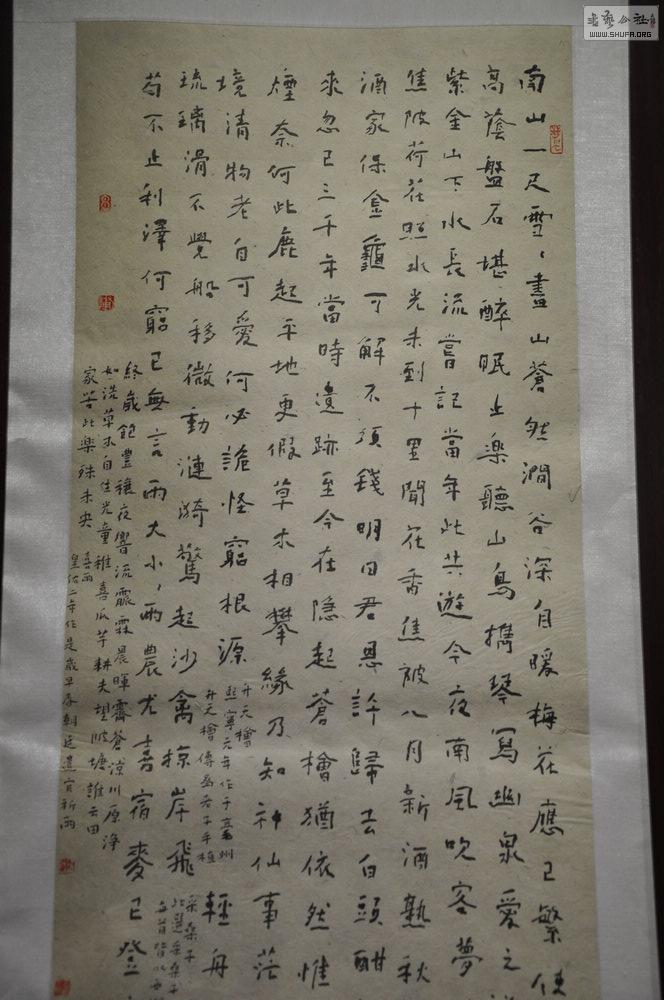 书艺公社
WWW.SHUFA.ORG
南山一尺雪、盡山蒼然澗谷深自暖梅花應已繁使
高蔭盤石堪醉眠止樂聽山鳥攜琴寫幽泉愛之
紫金山下水長流嘗記當年此共遊今夜南風吹客夢
焦陂荷花照水光未到十里聞花香焦陂八月新酒熟秋
酒家保金龜可解不須錢明日君恩許歸去白頭酣
來忽已三千年當時遺跡至今在隱起蒼檜猶依然惟
煙奈何此鹿起平地更假草木相攀緣乃知神仙事茫
境清物老自可愛何必詭怪窮根源
升天檜
熙寧元年作于亳州
升天檜傳為老子手植
輕舟
琉璃滑不覺船移微動漣漪驚起沙禽掠岸飛
采桑子
此選采桑子
每首皆以西
苟不止利澤何窮已無言雨大小、雨農尤喜宿麥已登
終歲飽豐穰夜響流霢霖晨暉霽蒼涼川原淨
如洗草木自佳光童稚喜瓜芋耕夫望陂塘誰云田
家苦此樂殊未央
喜雨
皇佑二年作是歲早春朝廷遣官祈雨